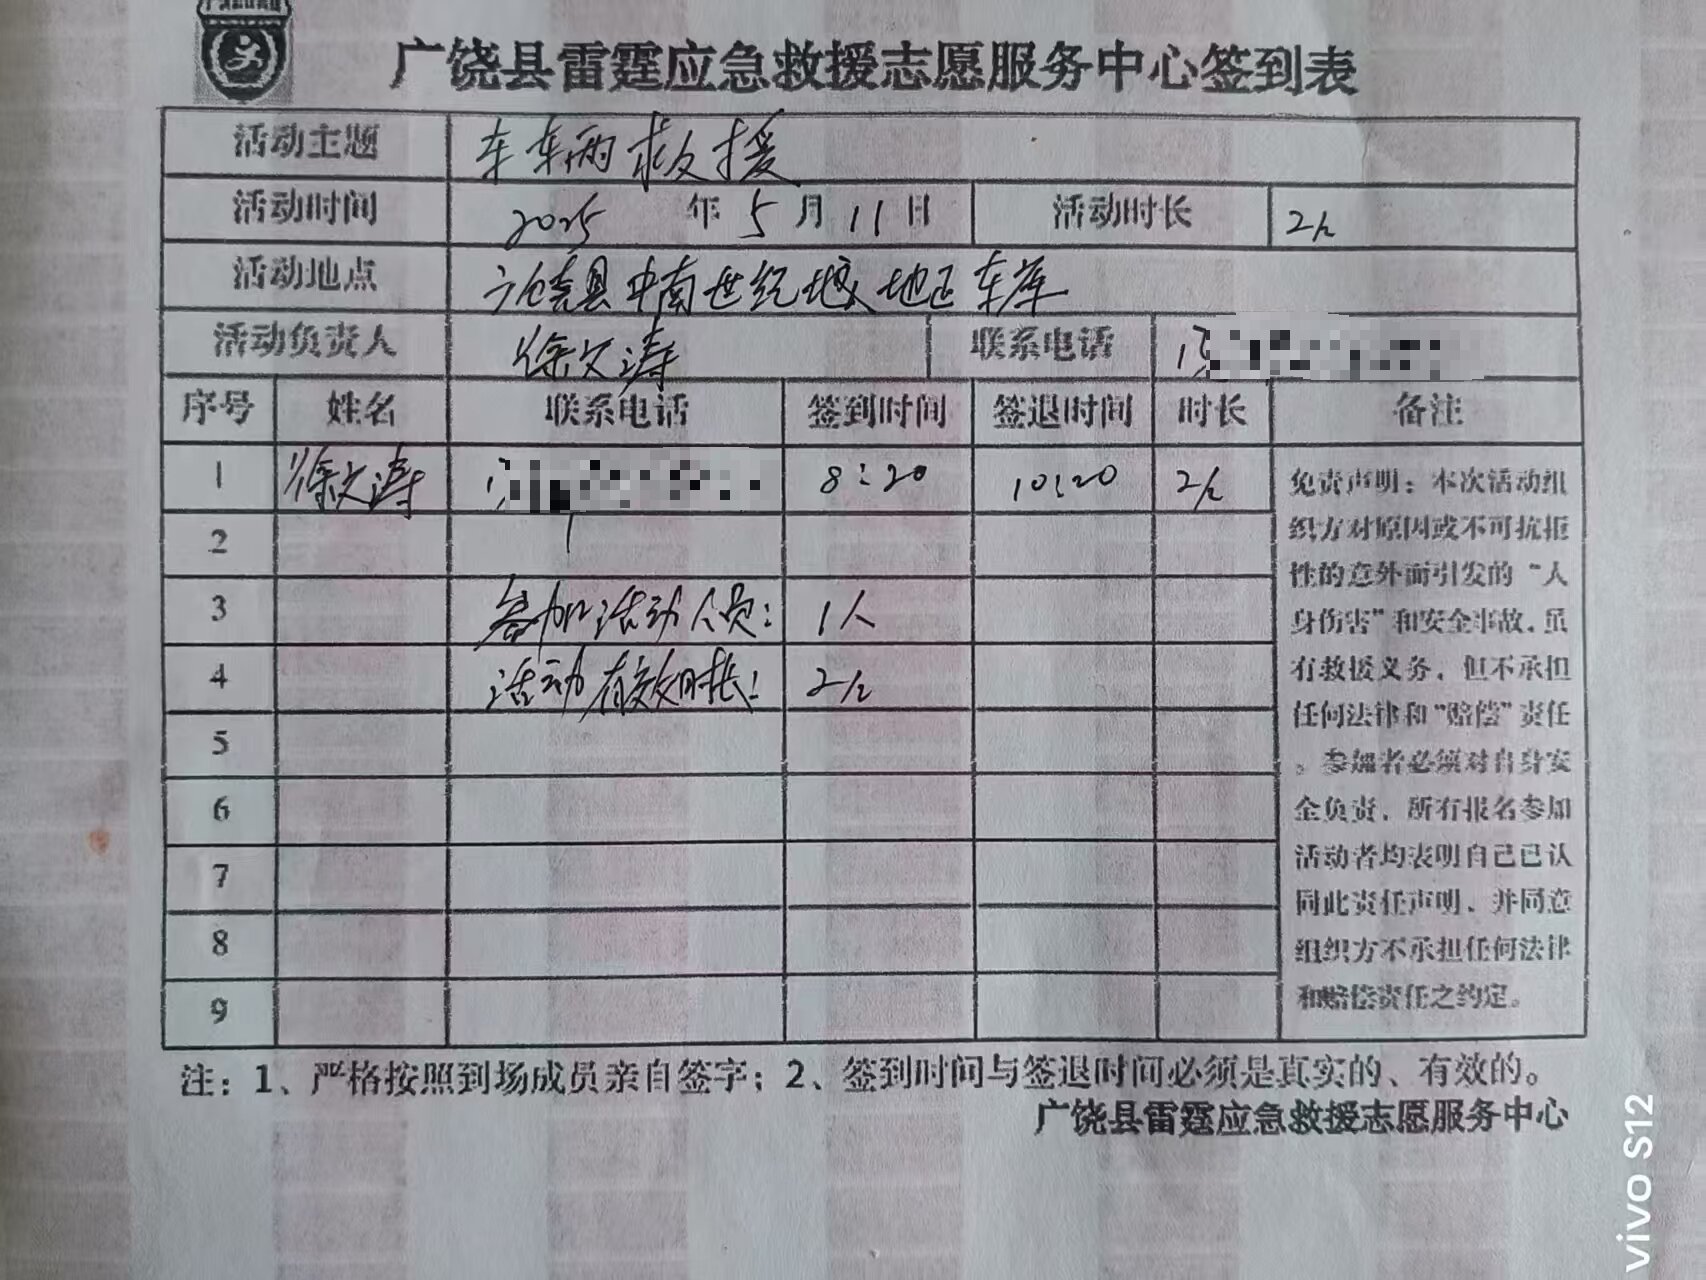 广饶县雷霆应急救援志愿服务中心签到表
活动主题 车车辆救援
活动时间 2025 年 5 月 11 日 活动时长 2h
活动地点 广饶县中南世纪城 地区车库
活动负责人 徐文涛 联系电话 1
序号 姓名 联系电话 签到时间 签退时间 时长 备注
1 徐文涛 1 8:20 10:20 2h
2
3 参加活动人员: 1人
4 活动有效时长: 2h
5
6
7
8
9
免责声明：本次活动组
织方对原因或不可抗拒
性的意外而引发的“人
身伤害”和安全事故，虽
有救援义务，但不承担
任何法律和“赔偿”责任
。参加者必须对自身安
全负责，所有报名参加
活动者均表明自己已认
同此责任声明，并同意
组织方不承担任何法律
和赔偿责任之约定。
注：1、严格按照到场成员亲自签字；2、签到时间与签退时间必须是真实的、有效的。
广饶县雷霆应急救援志愿服务中心
vivo S12